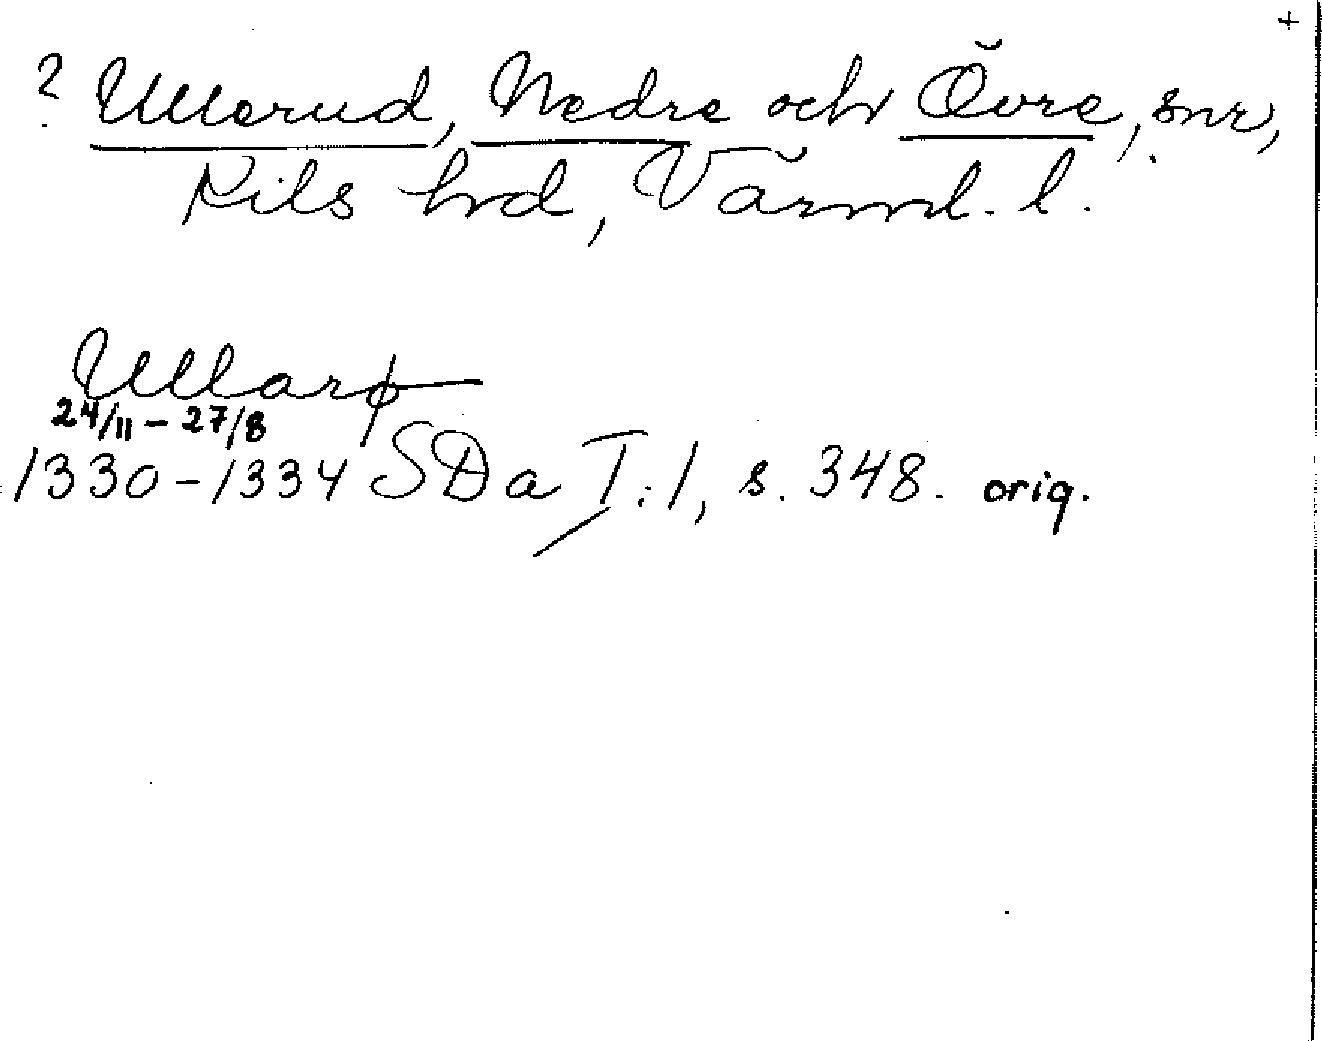 +
? Ullerud, Nedre och Övre, snr,
Kils hd, Värml. l.
Ullarþ
24/11 – 27/8
1330–1334 SDa T. 1, s. 348. orig.